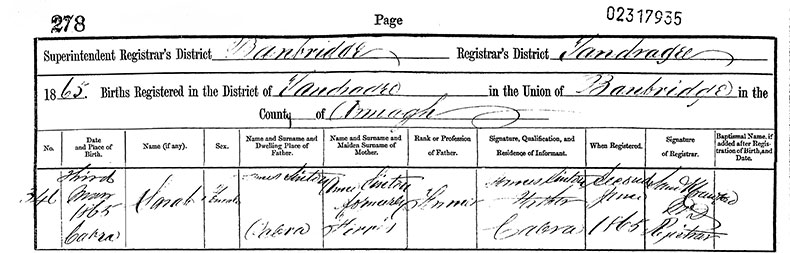 278
Page
02317935
Superintendent Registrar's District Banbridge Registrar's District Tandragee
1865. Births Registered in the District of Tandragee in the Union of Banbridge in the
County of Armagh
No. Date and Place of Birth. Name (if any). Sex. Name and Surname and Dwelling Place of Father. Name and Surname and Maiden Surname of Mother. Rank or Profession of Father. Signature, Qualification, and Residence of Informant. When Registered. Signature of Registrar. Baptismal Name, if added after Registration of Birth, and Date.
346
Third
May
1865
Cabra
Sarah
Female
Sinton
Cabra
Anne Sinton
formerly
Ferris
Farmer
Sinton
Father
Cabra
Second
June
1865
Registrar